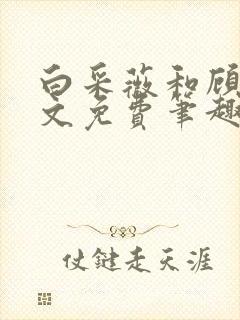 白采薇和顾
文免费笔趣
仗键走天涯